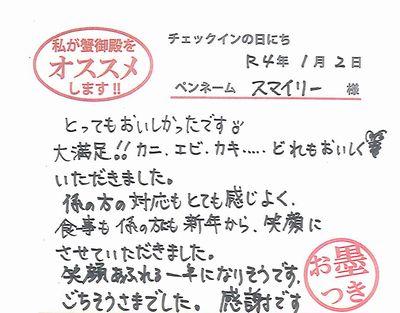 私が蟹御殿を
オススメ
します!!
チェックインの日にち
R4年 1月 2日
ペンネーム スマイリー 様
とってもおいしかったです
大満足!! カニ、エビ、カキ..... どれもおいしく
いただきました。
係の方の対応もとても感じよく、
食事も係の方も新年から、笑顔に
させていただきました。
笑顔あふれる一年になりそうです。
ごちそうさまでした。 感謝です
お墨
つき